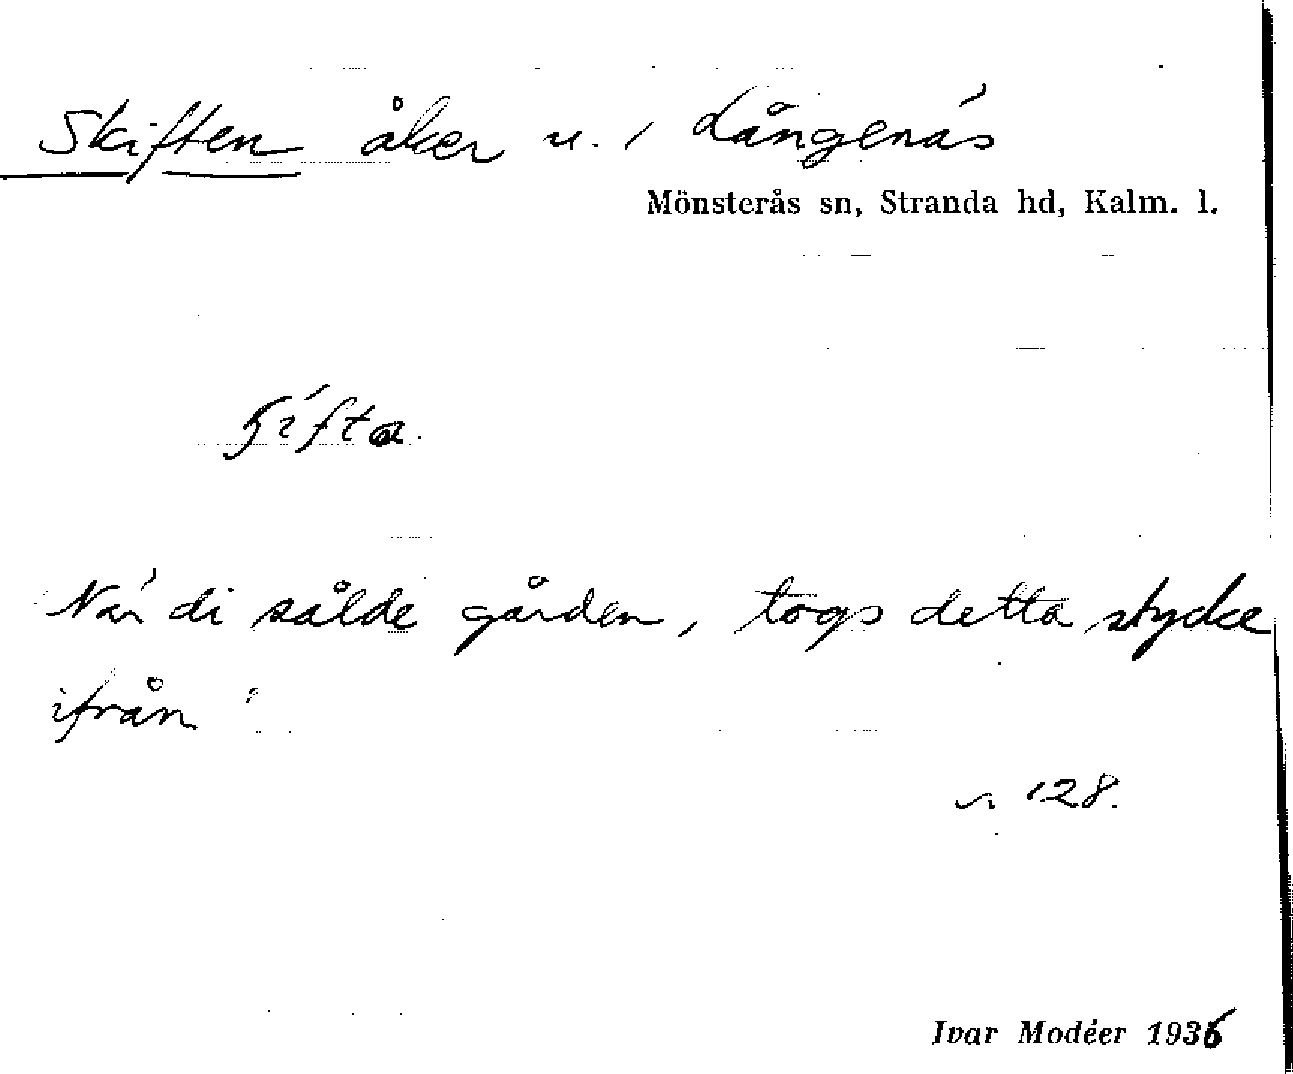 Skiften åker u. / Långenäs
Mönsterås sn, Stranda hd, Kalm. l.
När di sålde gården, togs detta stycke
ifrån
128.
Ivar Modéer 1936